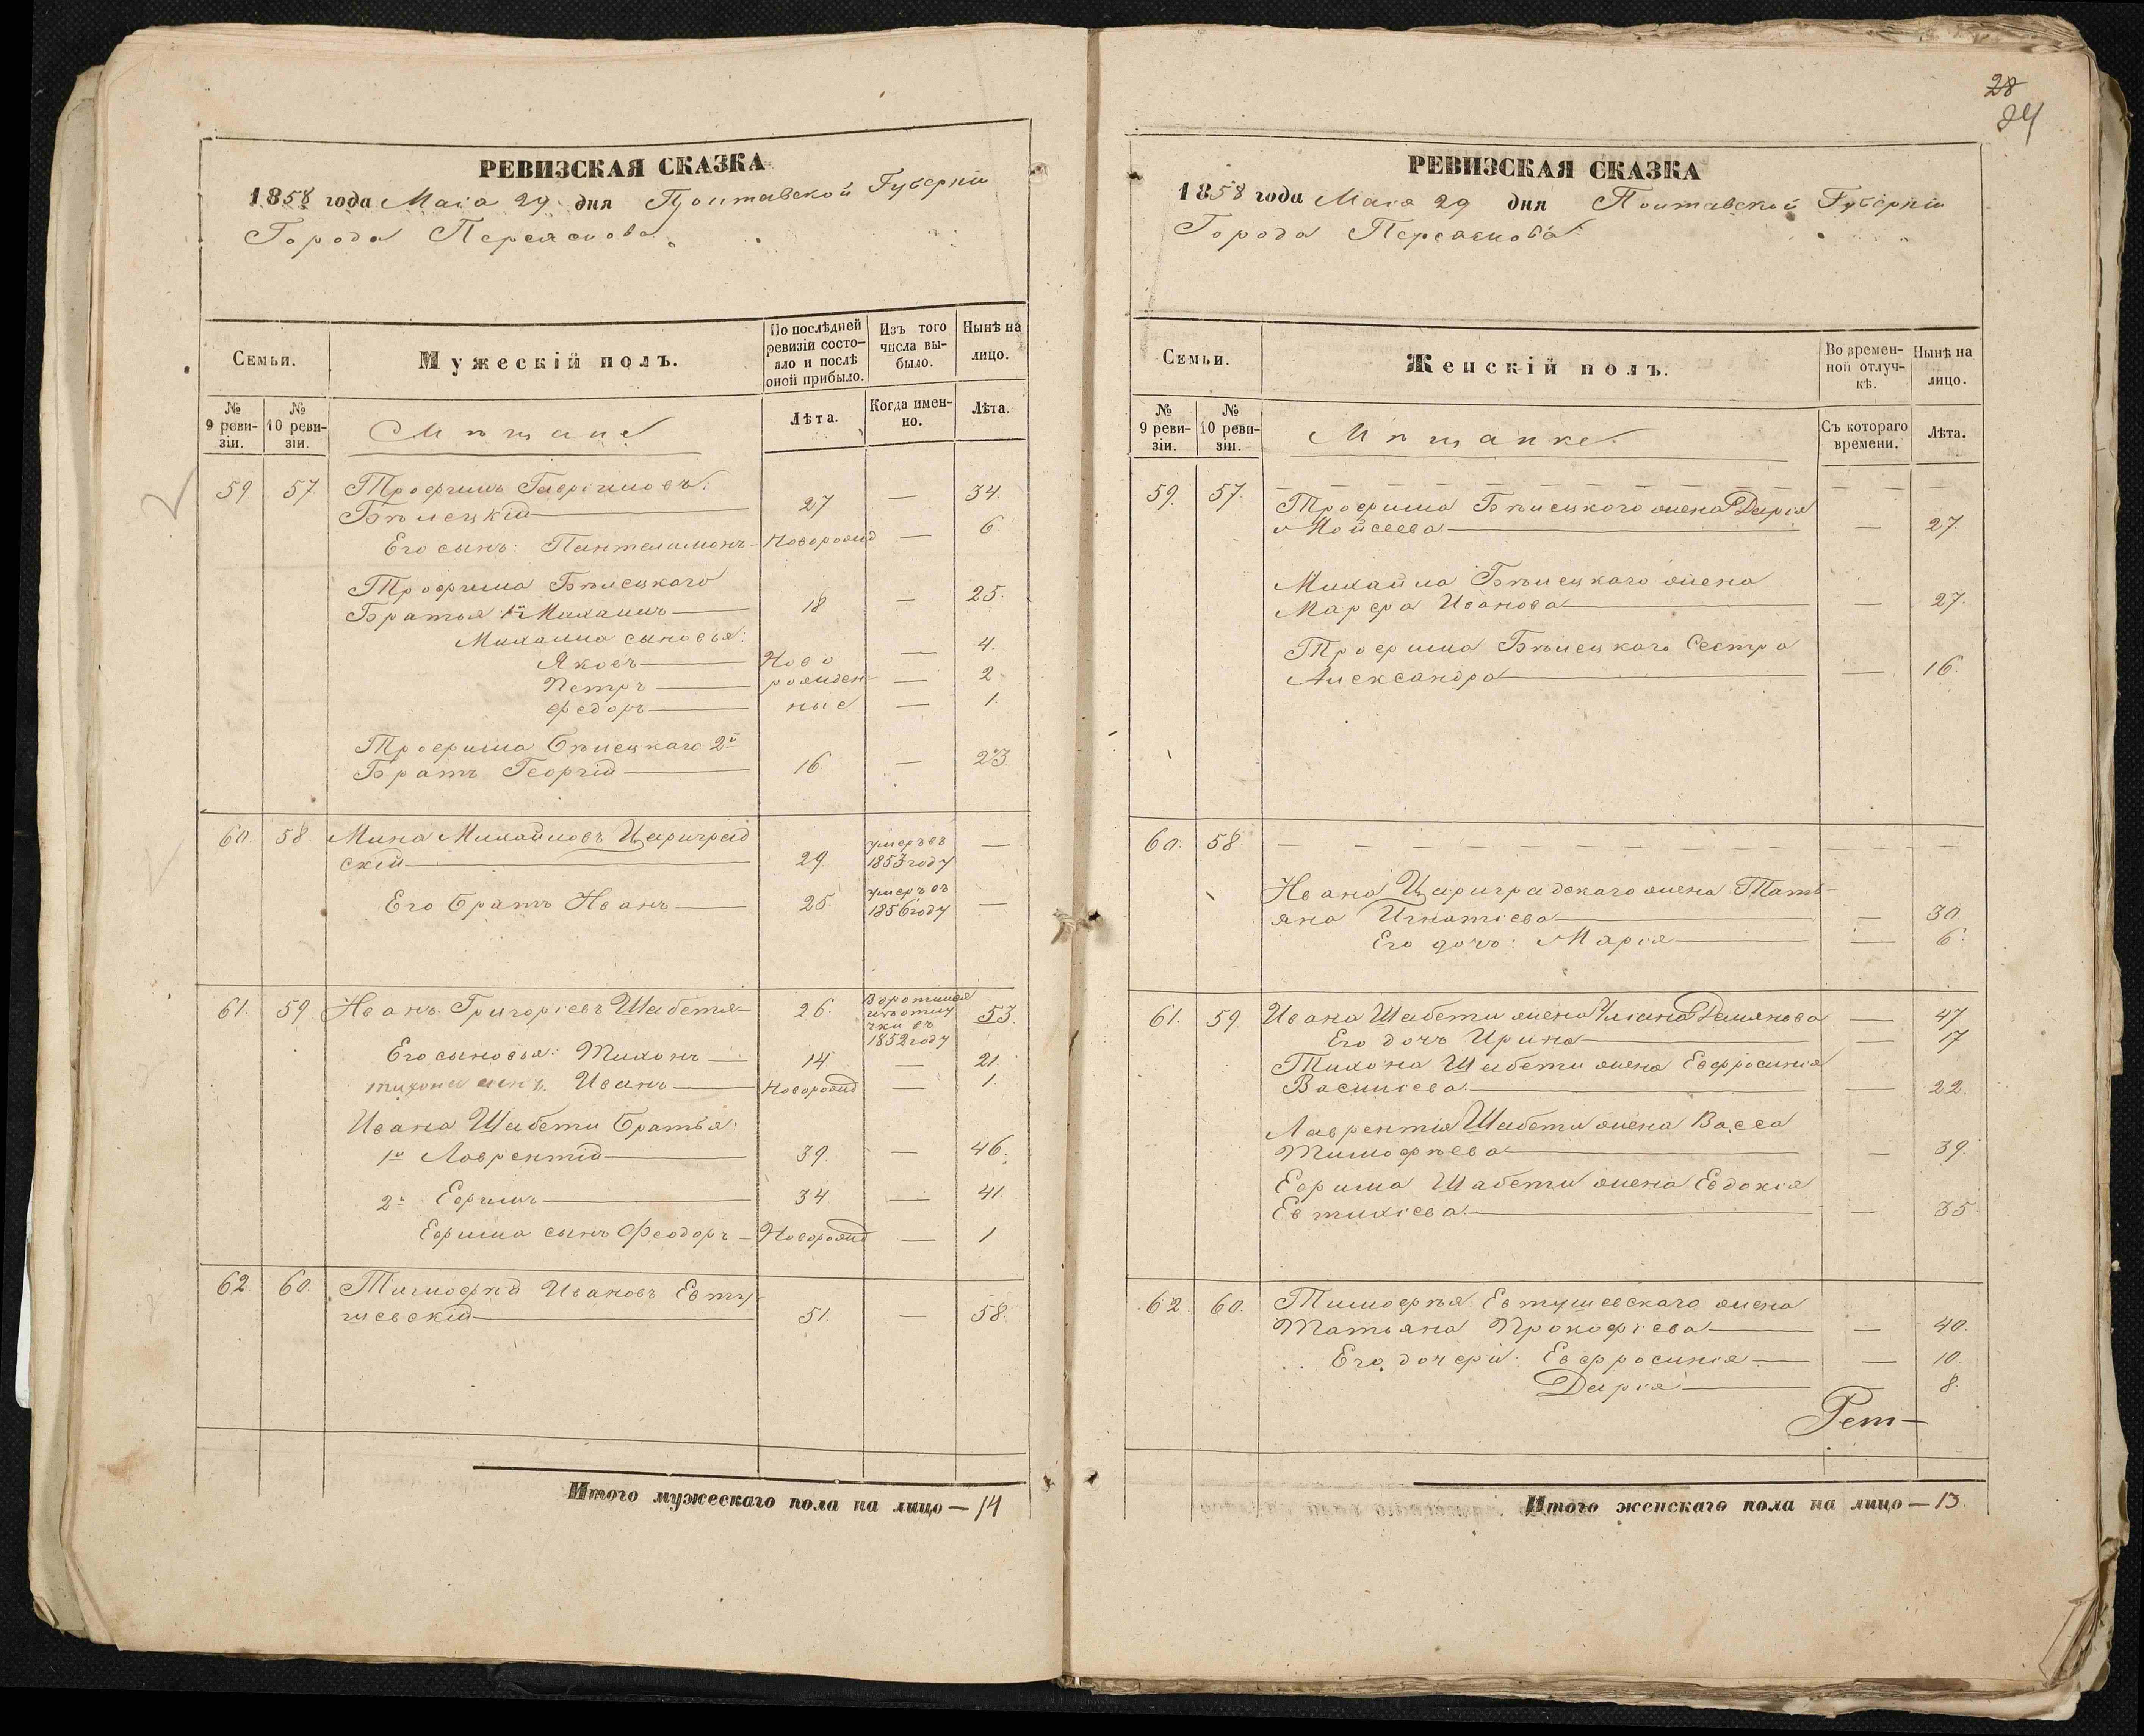 РЕВИЗСКАЯ СКАЗКА
1858 года Маія 29 дня Полтавской Губерніи
Города Переяслова
Семьи.
Мужескій полъ.
По послѣдней ревизіи состояло и послѣ оной прибыло.
Изъ того числа выбыло.
Нынѣ на лицо.
№ 9 ревизіи.
№ 10 ревизіи.
Мѣщане
Лѣта.
Когда именно.
Лѣта.
59 57 Трофимъ Гавріиловъ
Бѣлецкій 27 — 34.
Его сынъ: Пантелимонъ Новорожд — 6
Трофима Бѣлецкаго
Братья 1й Михаилъ 18 — 25.
Михаила сыновья:
Яковъ Ново — 4.
Петръ рожден — 2
Федоръ ные — 1.
Трофима Бѣлецкаго 2й
Братъ Георгій 16 — 23.
60. 58. Мина Михайловъ Цариград
скій 29. умеръ въ 1853 году —
Его братъ Иванъ 25 умеръ въ 1856 году —
61. 59 Иванъ Григоріевъ Шабетя 26. 1852 году 53.
Его сыновья: Тихонъ 14 — 21.
Тихона сынъ Иванъ Новорожд — 1.
Ивана Шабети братья:
1й Лаврентій 39. — 46.
2й Ефимъ 34 — 41.
Ефима сынъ Феодоръ Новорожд — 1
62. 60. Тимофѣй Ивановъ Евту
шевскій 51. — 58.
Итого мужескаго пола на лицо — 14
28
24
РЕВИЗСКАЯ СКАЗКА
1858 года Маія 29 дня Полтавской Губерніи
Города Переяслова
Семьи.
Женскій полъ.
Во временной отлучкѣ.
Нынѣ на лицо.
№ 9 ревизіи.
№ 10 ревизіи.
Мѣщанке
Съ котораго времени.
Лѣта.
59. 57.
Трофима Бѣлецкого жена Дарія
Мойсеева — 27.
Михайла Бѣлецкаго жена
Марфа Иванова — 27.
Трофима Бѣлецкаго Сестра
Александра — 16.
60. 58.
Ивана Цариградскаго жена Тать
яна Игнатіева — 30
Его дочь: Марія — 6.
61. 59 Ивана Шабети жена Уліана Демянова — 47
Его дочь Ирина — 17
Тихона Шабети жена Евфросинія
Василіева — 22.
Лаврентія Шабети жена Васса
Тимофѣева — 39
Ефима Шабети жена Евдокія
Евтихіева — 35
62. 60. Тимофѣя Евтушевскаго жена
Татьяна Прокофіева — 40.
Его дочери: Евфросинія — 10.
Дарія 8.
Рет—
Итого женскаго пола на лицо — 13